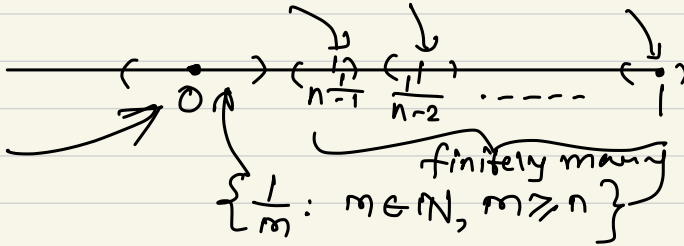 ( • ) ( 1 ) ( 1 ) ( • )
0 1/n-1 1/n-2 ------ 1
finitely many
{1/m : m ∈ ℕ, m ⩾ n}